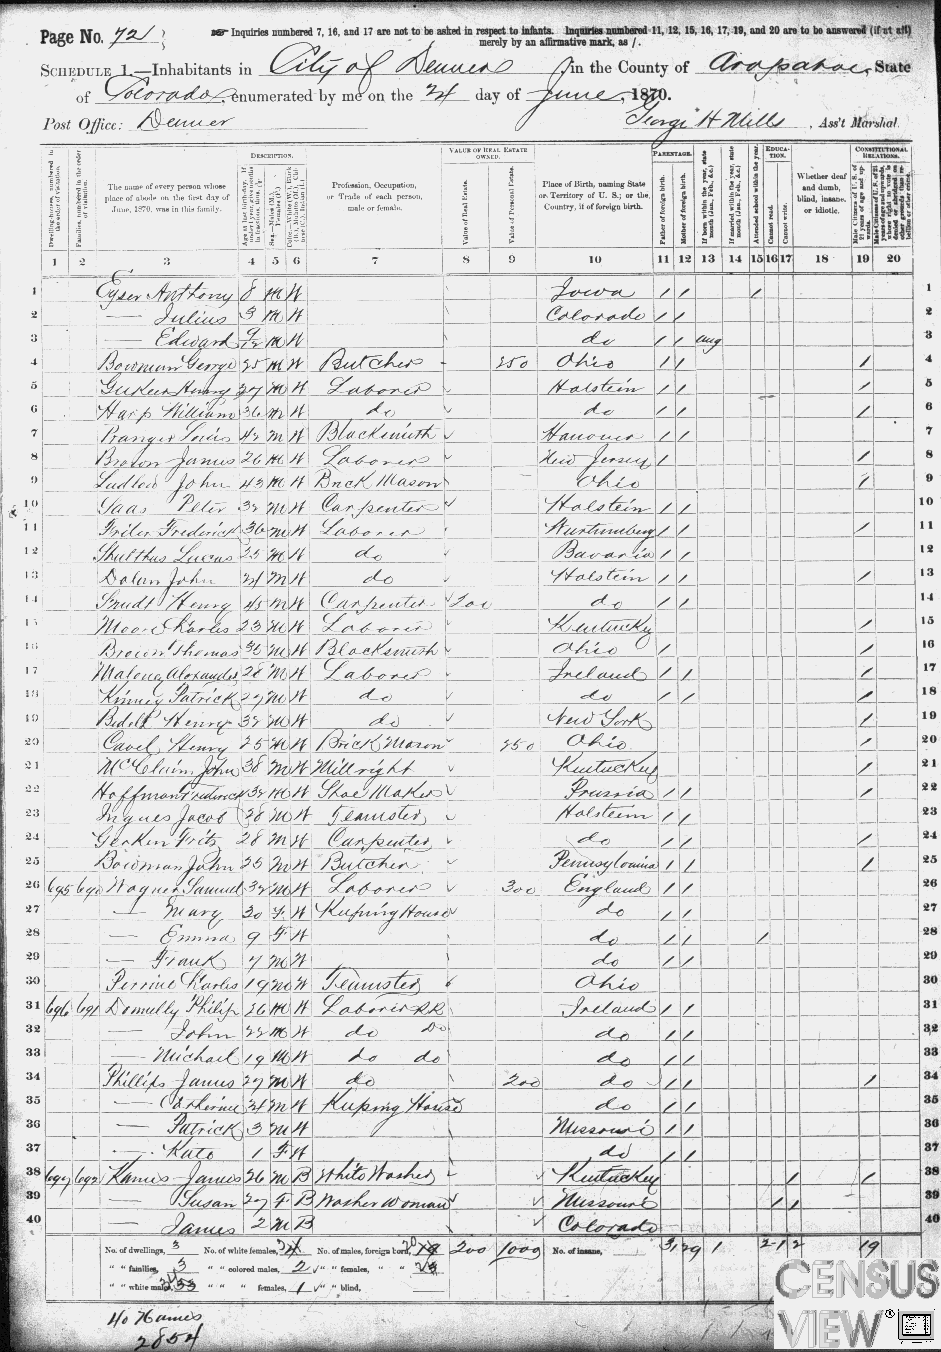 Page No. 72
Inquiries numbered 7, 16, and 17 are not to be asked in respect to infants. Inquiries numbered 11, 12, 15, 16, 17, 19, and 20 are to be answered (if at all)
merely by an affirmative mark, as /.
SCHEDULE 1.—Inhabitants in City of Denver, in the County of Arapahoe, State
of Colorado, enumerated by me on the 24 day of June, 1870.
Post Office: Denver George H Mills, Ass't Marshal.
DESCRIPTION. VALUE OF REAL ESTATE OWNED. PARENTAGE. EDUCATION. CONSTITUTIONAL RELATIONS.
Dwelling-houses, numbered in the order of visitation.
Families, numbered in the order of visitation.
The name of every person whose place of abode on the first day of June, 1870, was in this family.
Profession, Occupation, or Trade of each person, male or female.
Value of Real Estate.
Value of Personal Estate.
Place of Birth, naming State or Territory of U. S.; or the Country, if of foreign birth.
Father of foreign birth.
Mother of foreign birth.
If born within the year, state month (Jan., Feb., &c.)
If married within the year, state month (Jan., Feb., &c.)
Attended school within the year.
Cannot read.
Cannot write.
Whether deaf and dumb, blind, insane, or idiotic.
1 2 3 4 5 6 7 8 9 10 11 12 13 14 15 16 17 18 19 20
1 Eyser Anthony 8 M W Iowa / / / 1
2 — Julius 3 M W Colorado / / 2
3 — Edward 9/12 M W do / / Aug 3
4 Bowman George 25 M W Butcher 250 Ohio / / / 4
5 Henry 27 M W Laborer Holstein / / / 5
6 Harp William 36 M W do do / / / 6
7 Pranger Louis 42 M W Blacksmith Hanover / / 7
8 Brown James 26 M W Laborer New Jersey / / 8
9 Ludlow John 43 M W Brick Mason Ohio / 9
10 Gaas Peter 32 M W Carpenter Holstein / / 10
11 Friler Frederick 36 M W Laborer Wurtumberg / / / 11
12 Shulthus Lucas 25 M W do Bavaria / / 12
13 Dolan John 24 M W do Holstein / / / 13
14 Henry 45 M W Carpenter 200 do / / 14
15 Moore Charles 23 M W Laborer Kentucky / 15
16 Brown Thomas 36 M W Blacksmith Ohio / / 16
17 Malony Alexander 28 M W Laborer Ireland / / / 17
18 Kinney Patrick 27 M W do do / / / 18
19 Henry 32 M W do New York / 19
20 Cavel Henry 25 M W Brick Mason 250 Ohio / 20
21 McClain John 38 M W Millright Kentucky / 21
22 Hoffman Frederick 32 M W Shoe Maker Prussia / / / 22
23 Jacob 28 M W Teamster Holstein / / 23
24 Gerken Fritz 28 M W Carpenter do / / / 24
25 Bowman John 25 M W Butcher Pennsylvania / / / 25
26 695 690 Wagner Samuel 32 M W Laborer 300 England / / 26
27 — Mary 30 F W Keeping House do / / 27
28 — Emma 9 F W do / / / 28
29 — Frank 7 M W do / / 29
30 Perrine Charles 19 M W Teamster Ohio 30
31 696 691 Donnelly Philip 26 M W Laborer RR Ireland / / 31
32 — John 22 M W do Do do / / 32
33 — Michael 19 M W do do do / / 33
34 Phillips James 27 M W do 200 do / / / 34
35 — Catherine 24 M W Keeping House do / / 35
36 — Patrick 3 M W Missouri / / 36
37 — Kate 1 F W do / / 37
38 697 692 Kames James 26 M B White Washer Kentucky / / 38
39 — Susan 27 F B Washer Woman Missouri / / 39
40 — James 2 M B Colorado 40
No. of dwellings, 3 No. of white females, No. of males, foreign born, 200 1000 No. of insane, 31 29 1 2 1 2 19
" " families, 3 " " colored males, 2 " " females, " "
" " white males, " " " females, 1 " " blind,
40 Names
2854
CENSUS
VIEW